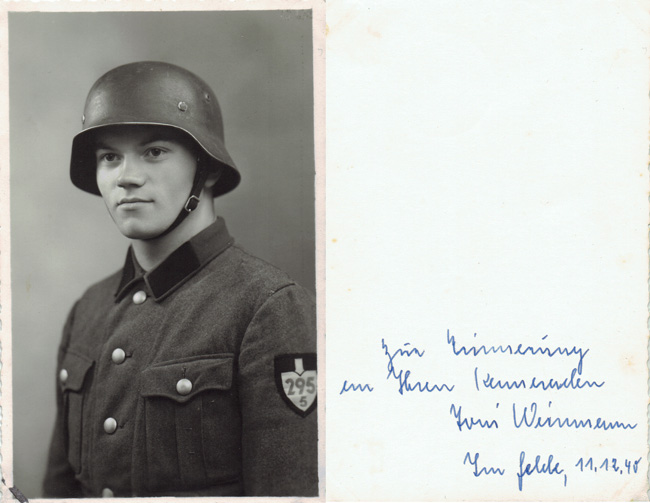 295
5
Zur Erinnerung
an Ihren Kameraden
Toni Weinmann
Im Felde, 11.12.40